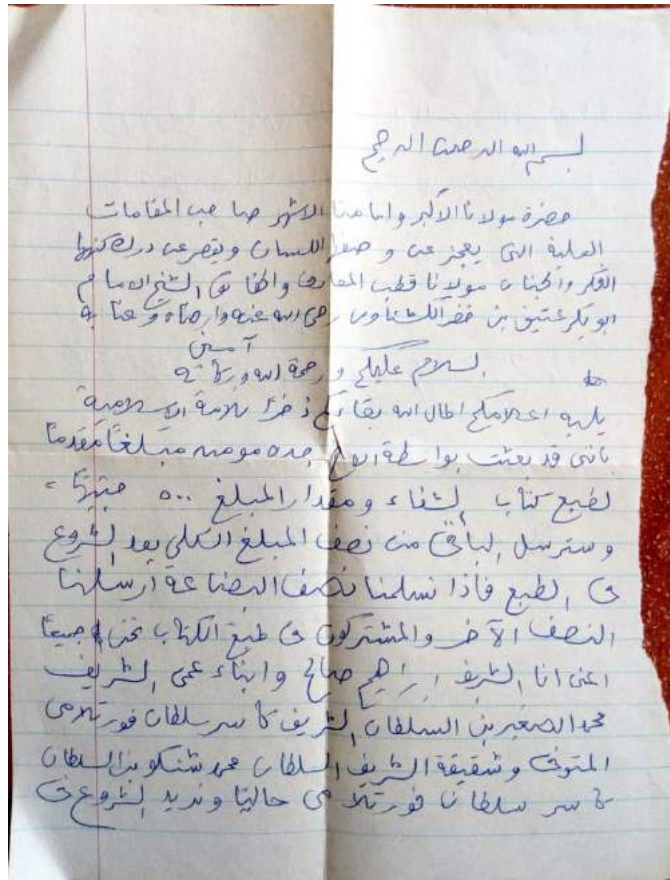 بسم الله الرحمن الرحيم
حضرة مولانا الأكبر وامامنا الاشهر صاحب المقامات
العلية التى يعجز عن وصفها اللسان ويقصر عن درك كنهها
الفكر والجنان مولانا قطب المعارف والحقائق الشيخ الامام
ابوبكر عتيق بن خضر الكشناوى رضى الله عنه وارضاه وعنا به
آمين
السلام عليكم ورحمة الله وبركاته
يليه اعلامكم اطال الله بقاءكم ذخرا للامة الاسلامية
بانى قد بعثت بواسطة الحاج جده مبلغاً مقدماً
لطبع كتاب الشفاء ومقدار المبلغ ٥٠٠ جنيها
وسنرسل الباقى من نصف المبلغ الكلى بعد الشروع
فى الطبع فاذا تسلمنا نصف البضاعة أرسلنا
النصف الآخر والمشتركون فى طبع الكتاب نحن جميعاً
اعنى انا الشريف ابراهيم صالح وابناء عمى الشريف
محمد الصغير بن السلطان الشريف كاسر سلطان فورتلامى
المتوفى وشقيقه الشريف السلطان محمد شنكو بن السلطان
كاسر سلطان فورتلامى حاليا ونريد الشروع فى